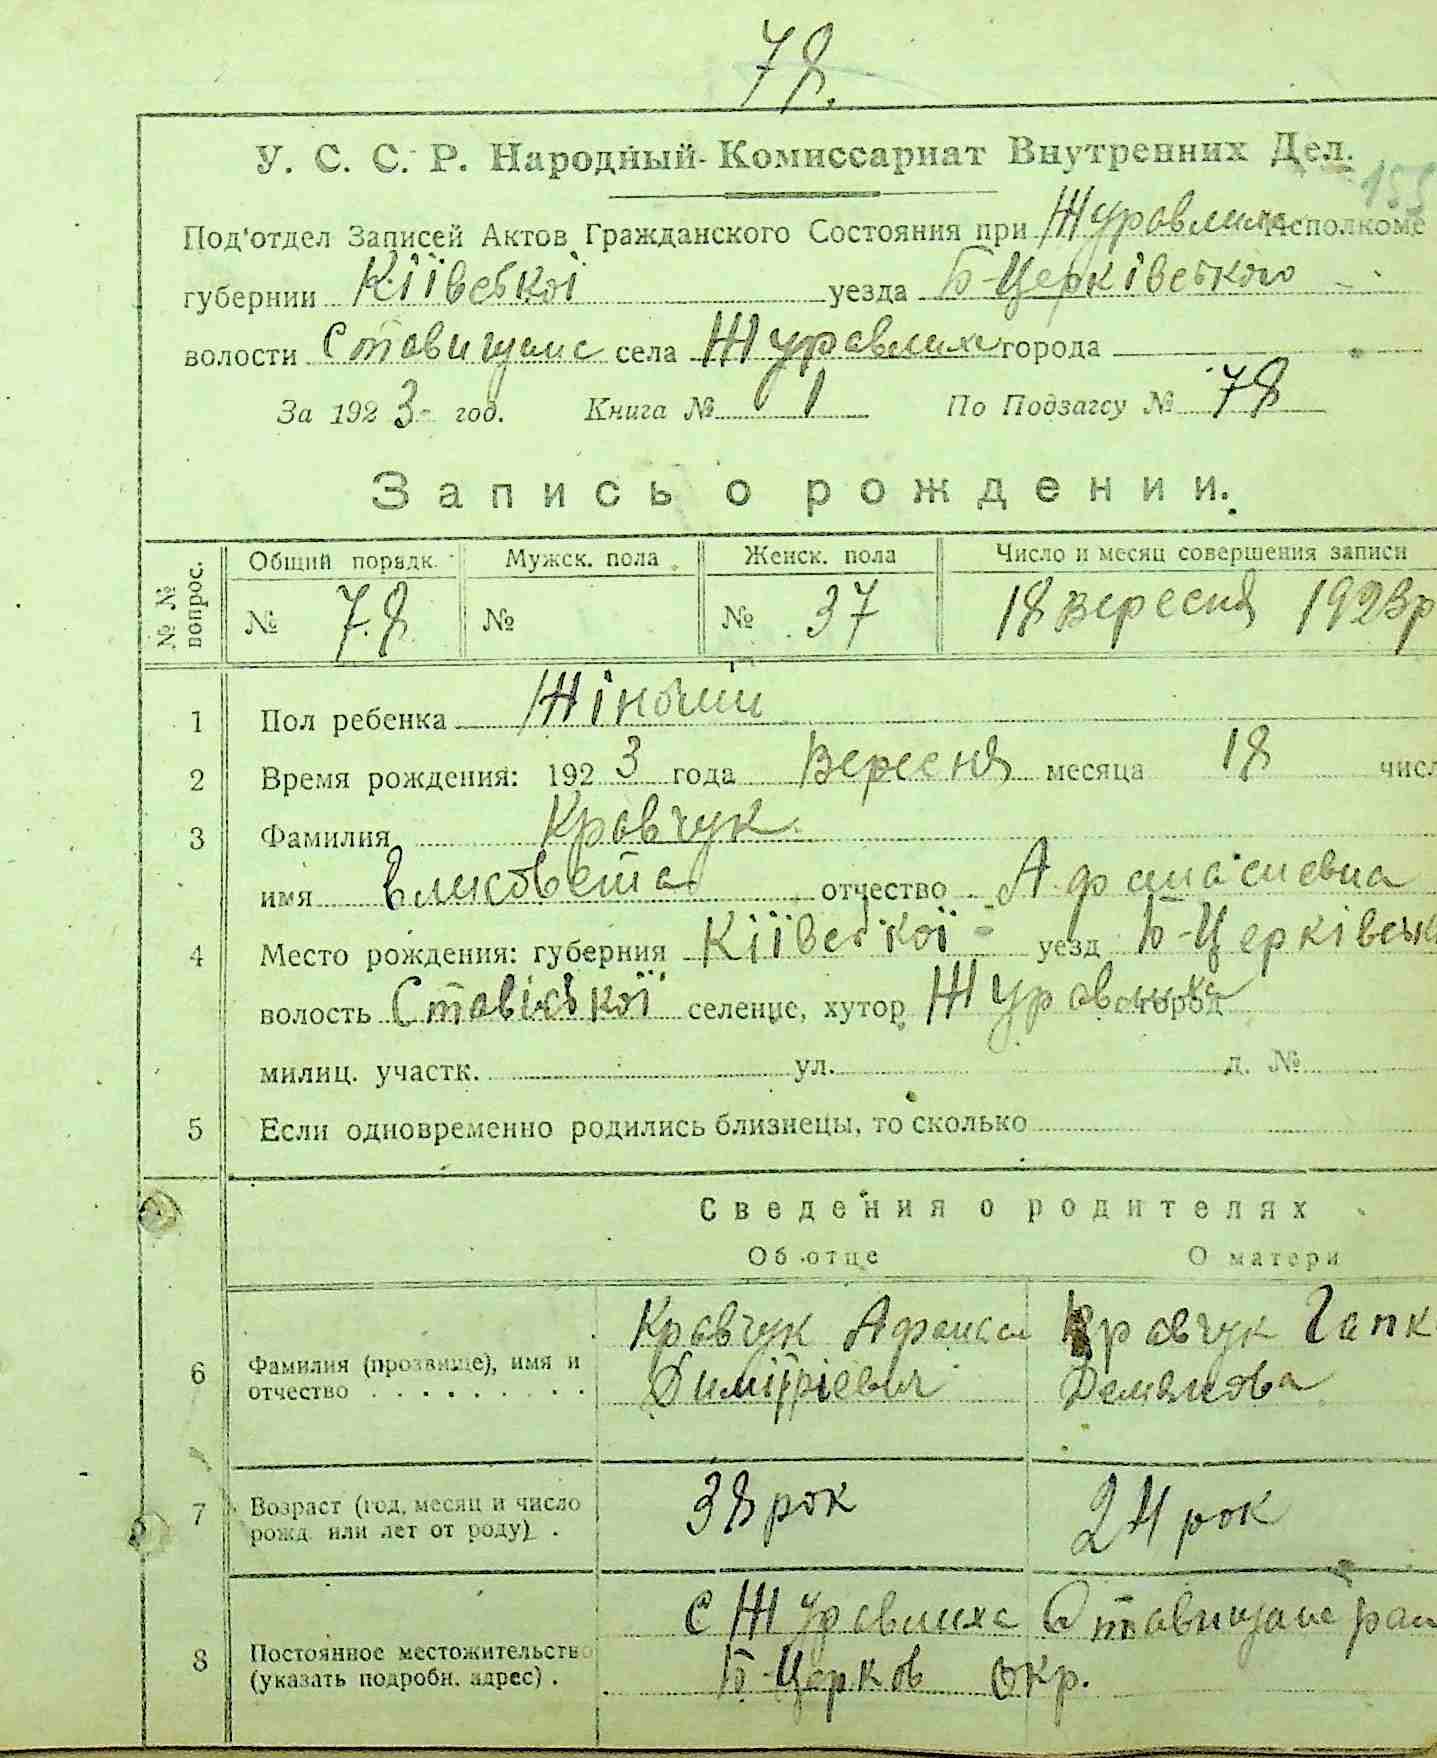 78.
У. С. С. Р. Народный Комиссариат Внутренних Дел.
155
Под'отдел Записей Актов Гражданского Состояния при Журавлиха Исполкоме
губернии Кіївської уезда Б-Церківського
волости Ставищанс села Журавлиха города
За 1923 год. Книга № 1 По Подзагсу № 78
Запись о рождении.
№ № вопрос. Общий порядк. Мужск. пола Женск. пола Число и месяц совершения записи
№ 78 № № 37 18 Вересня 1923 р
1 Пол ребенка Жіночий
2 Время рождения: 1923 года Вересня месяца 18 числ
3 Фамилия Кравчук
имя Елисовета отчество Афанасиевна
4 Место рождения: губерния Кіївської уезд Б-Церківськ
волость Ставіської селение, хутор Журавлиха город
милиц. участк. ул. д. №
5 Если одновременно родились близнецы, то сколько
Сведения о родителях
Об отце О матери
Кравчук Афанаси Кравчук Гапк
6 Фамилия (прозвище), имя и отчество Димітріевич Демянова
7 Возраст (год, месяц и число рожд. или лет от роду) . 38 рок 24 рок
с Журавлиха Ставищане рай
8 Постоянное местожительство (указать подробн. адрес) . Б-Церков окр.